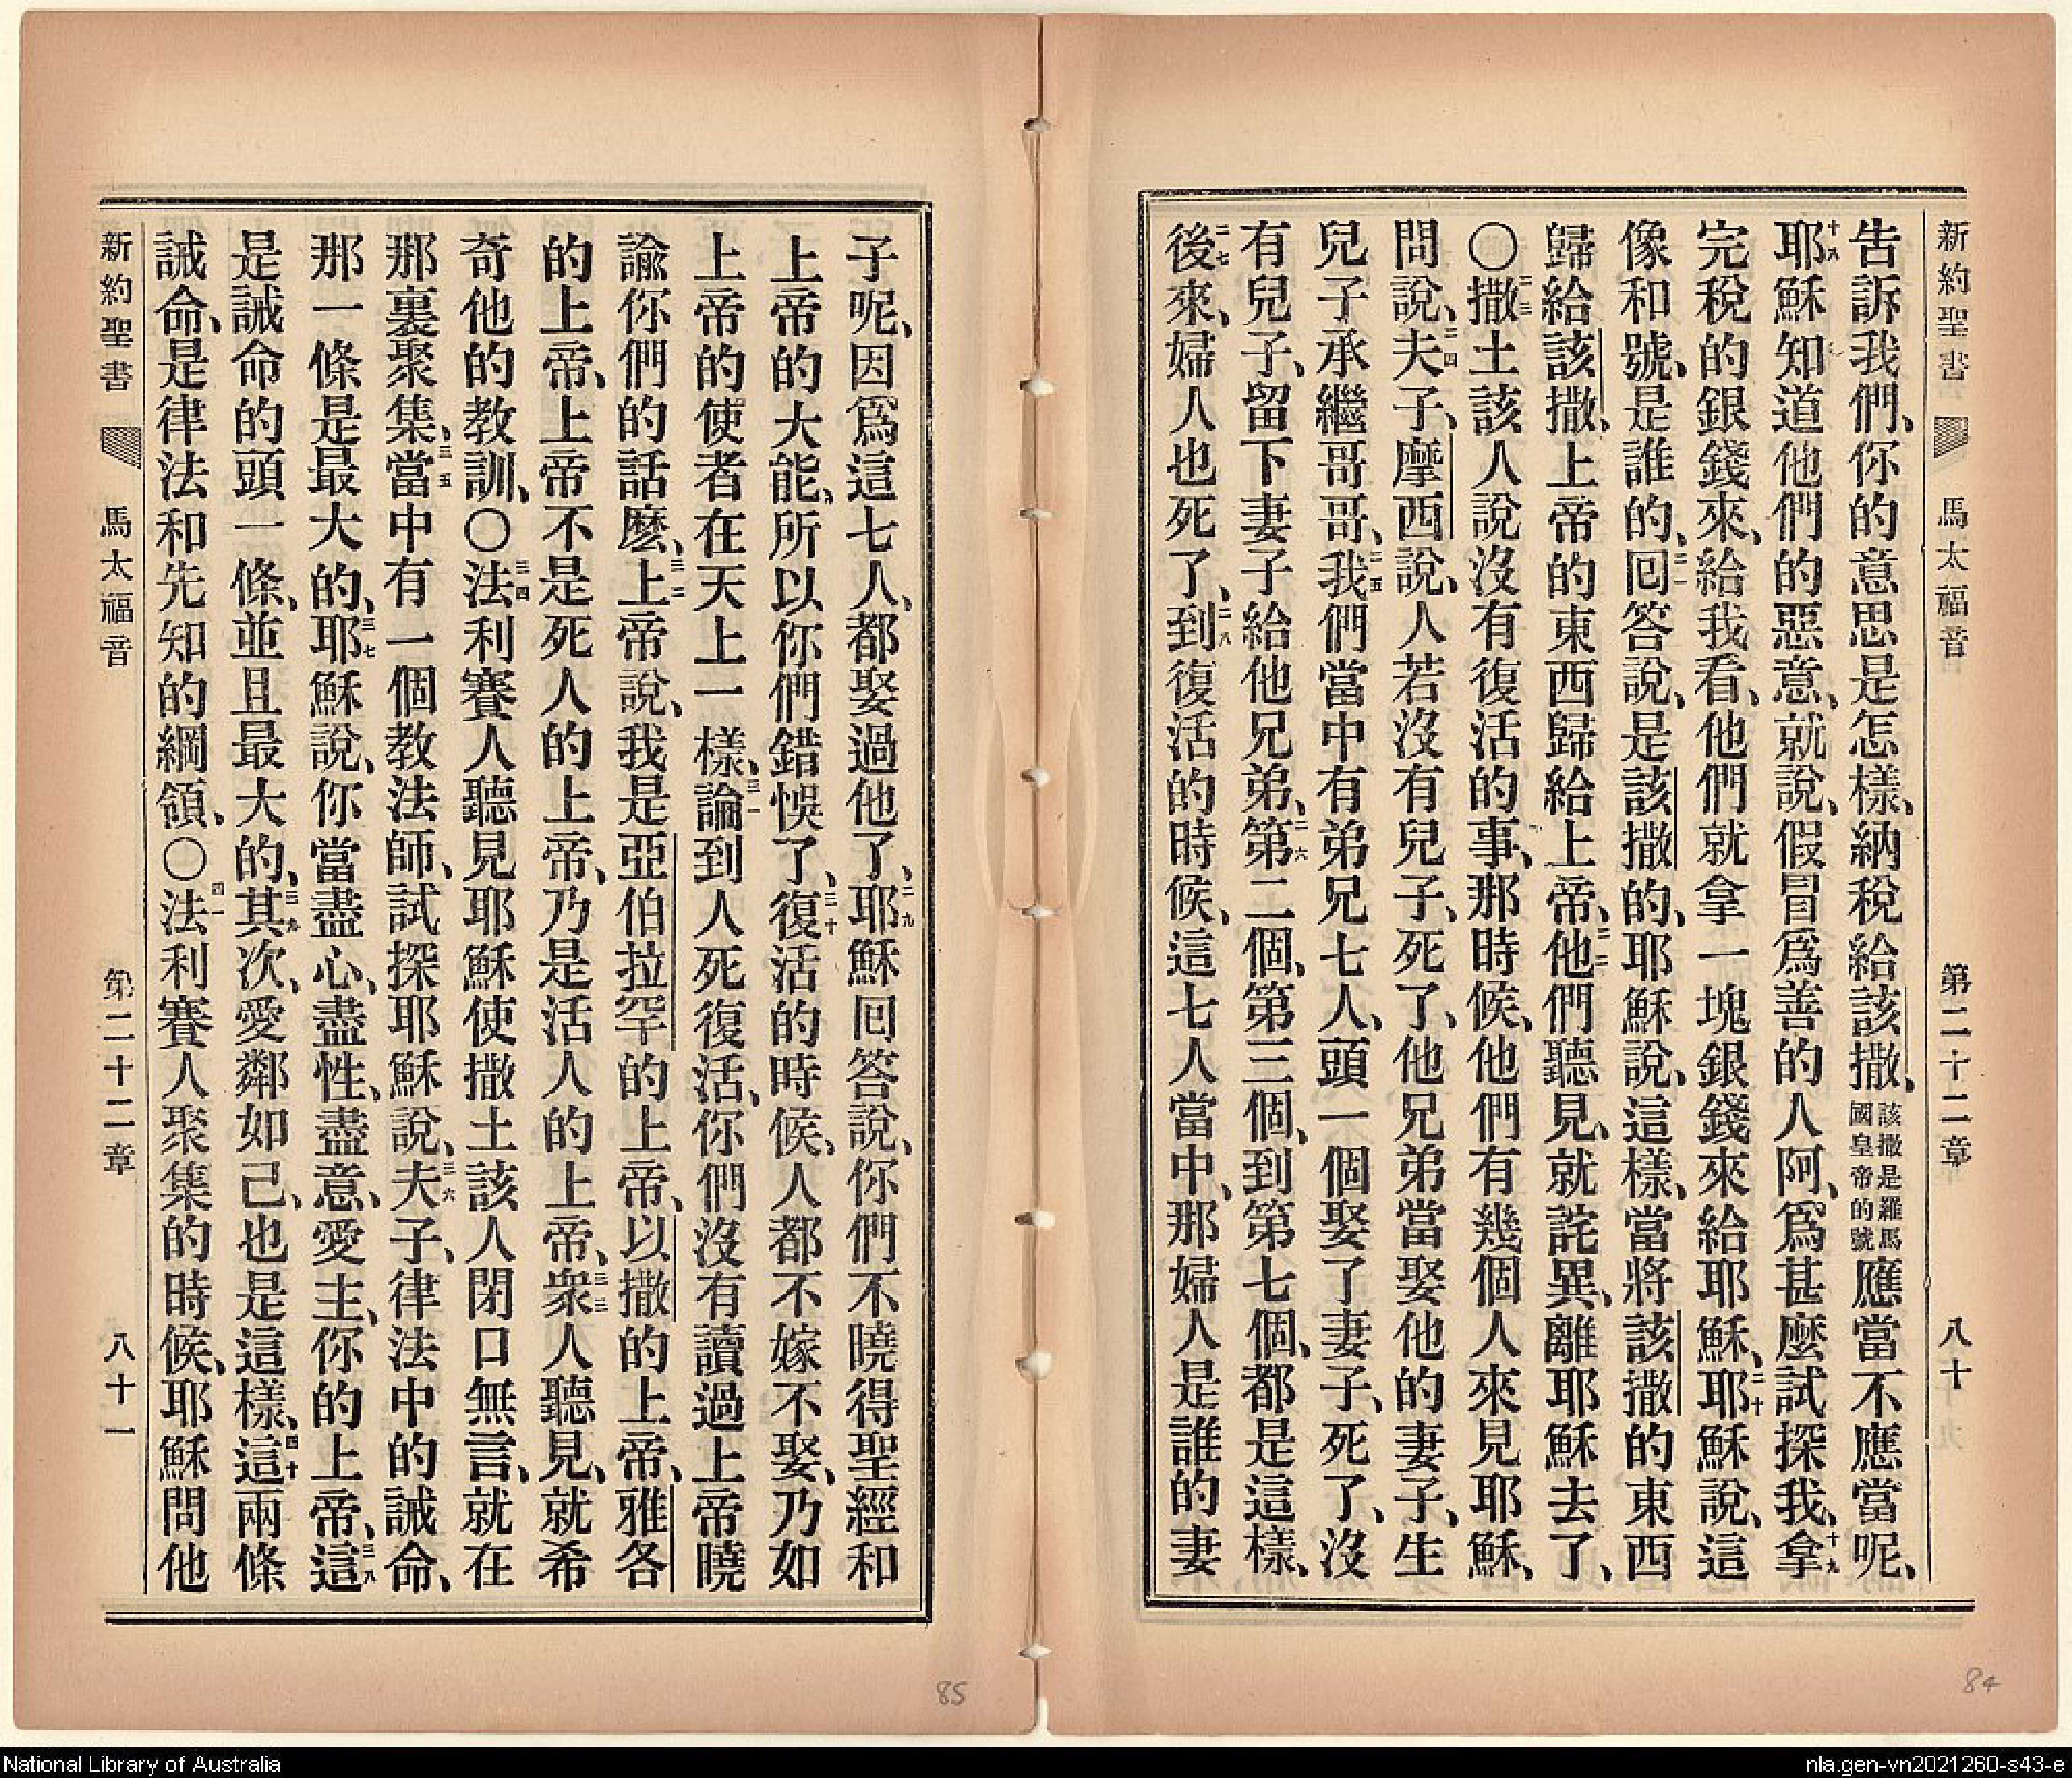 新約聖書 馬太福音 第二十二章 八十
告訴我們、你的意思是怎樣、納稅給該撒、該撒是羅馬國皇帝的號應當不應當呢、
十八耶穌知道他們的惡意、就說、假冒爲善的人阿、爲甚麼試探我、十九拿
完稅的銀錢來、給我看、他們就拿一塊銀錢來給耶穌、二十耶穌說、這
像和號、是誰的、二一回答說、是該撒的、耶穌說、這樣、當將該撒的東西
歸給該撒、上帝的東西歸給上帝、二二他們聽見、就詫異、離耶穌去了、
〇二三撒土該人說沒有復活的事、那時候、他們有幾個人來見耶穌、
問說、二四夫子、摩西說、人若沒有兒子、死了、他兄弟當娶他的妻子、生
兒子承繼哥哥、二五我們當中有弟兄七人、頭一個娶了妻子、死了、沒
有兒子、留下妻子給他兄弟、二六第二個、第三個、到第七個、都是這樣、
二七後來、婦人也死了、二八到復活的時候、這七人當中、那婦人是誰的妻
子呢、因爲這七人、都娶過他了、二九耶穌回答說、你們不曉得聖經和
上帝的大能、所以你們錯悞了、三十復活的時候、人都不嫁不娶、乃如
上帝的使者在天上一樣、三一論到人死復活、你們沒有讀過上帝曉
諭你們的話麽、三二上帝說、我是亞伯拉罕的上帝、以撒的上帝、雅各
的上帝、上帝不是死人的上帝、乃是活人的上帝、三三衆人聽見、就希
奇他的教訓、〇三四法利賽人聽見耶穌使撒土該人閉口無言、就在
那裏聚集、三五當中有一個教法師、試探耶穌說、三六夫子、律法中的誡命、
那一條是最大的、三七耶穌說、你當盡心、盡性、盡意、愛主、你的上帝、三八這
是誡命的頭一條、並且最大的、三九其次、愛鄰如己、也是這樣、四十這兩條
誡命、是律法和先知的綱領、〇四一法利賽人聚集的時候、耶穌問他
新約聖書 馬太福音 第二十二章 八十一
85
84
National Library of Australia
nla.gen-vn2021260-s43-e